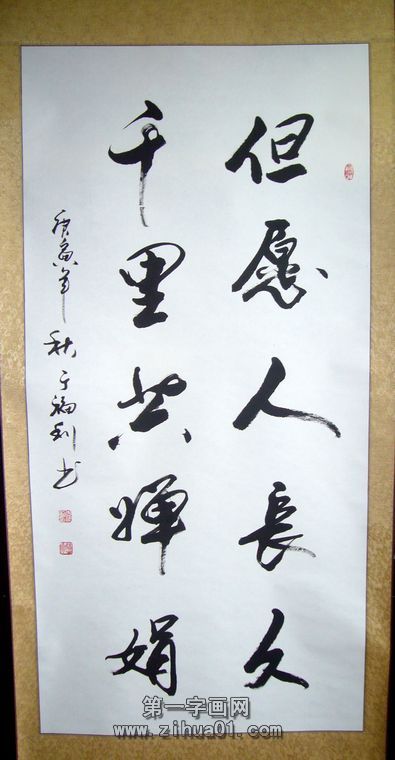 但愿人长久
千里共婵娟
庚寅年秋于福利书
第一字画网
www.zihua01.com